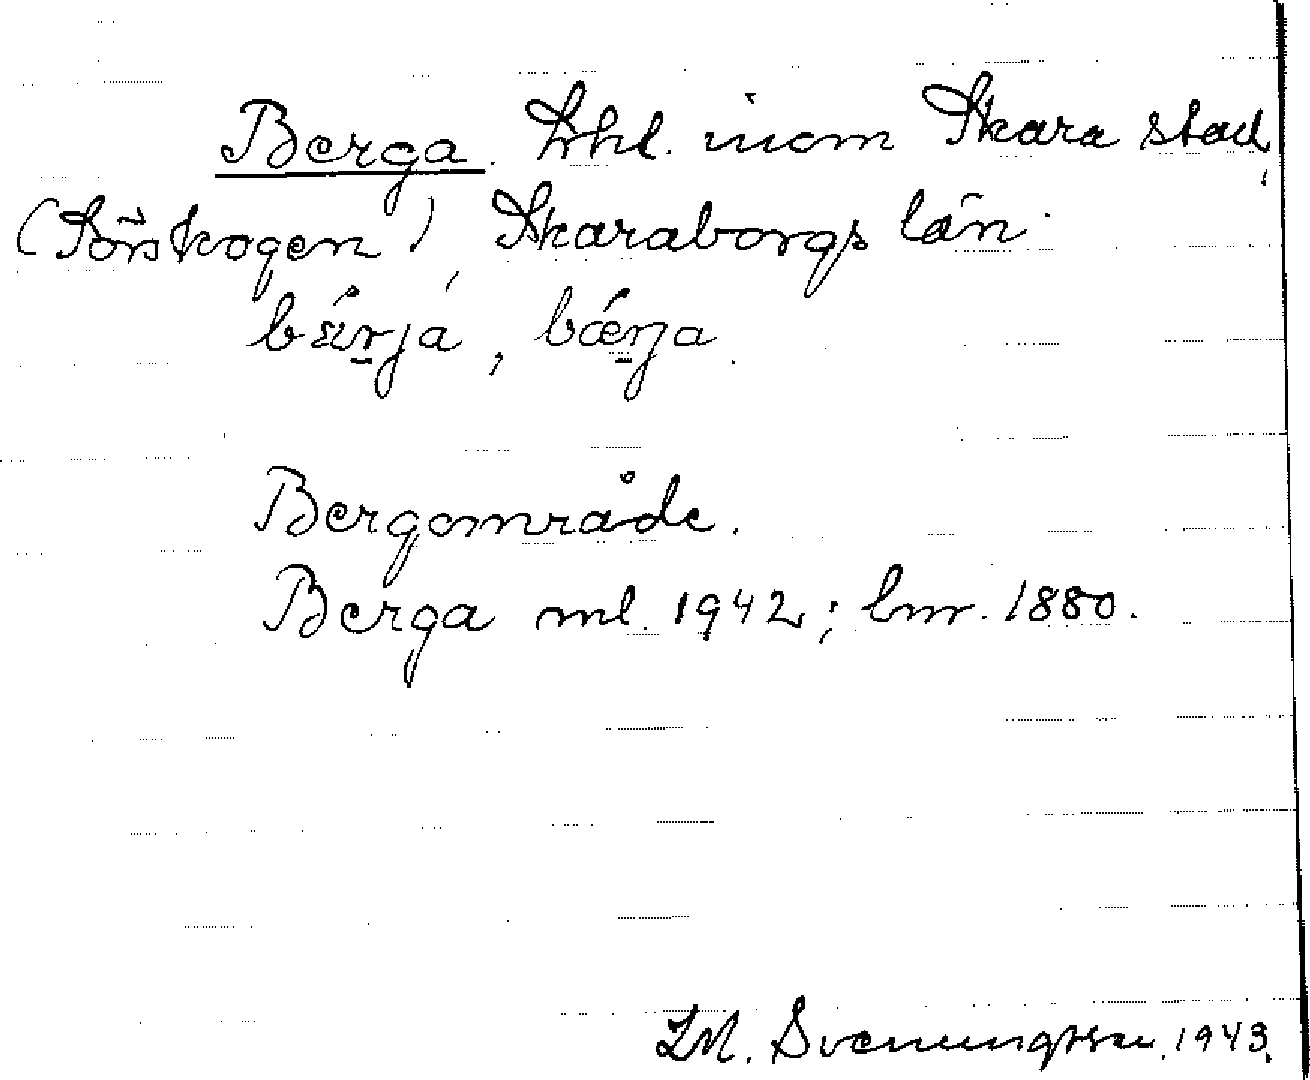 Berga. Lhl. inom Skara stad,
(Sörskogen), Skaraborgs län.
bǽrjà, bǽrja.
Bergområde.
Berga ml. 1942; lmr. 1880.
Svenungsson. 1943.